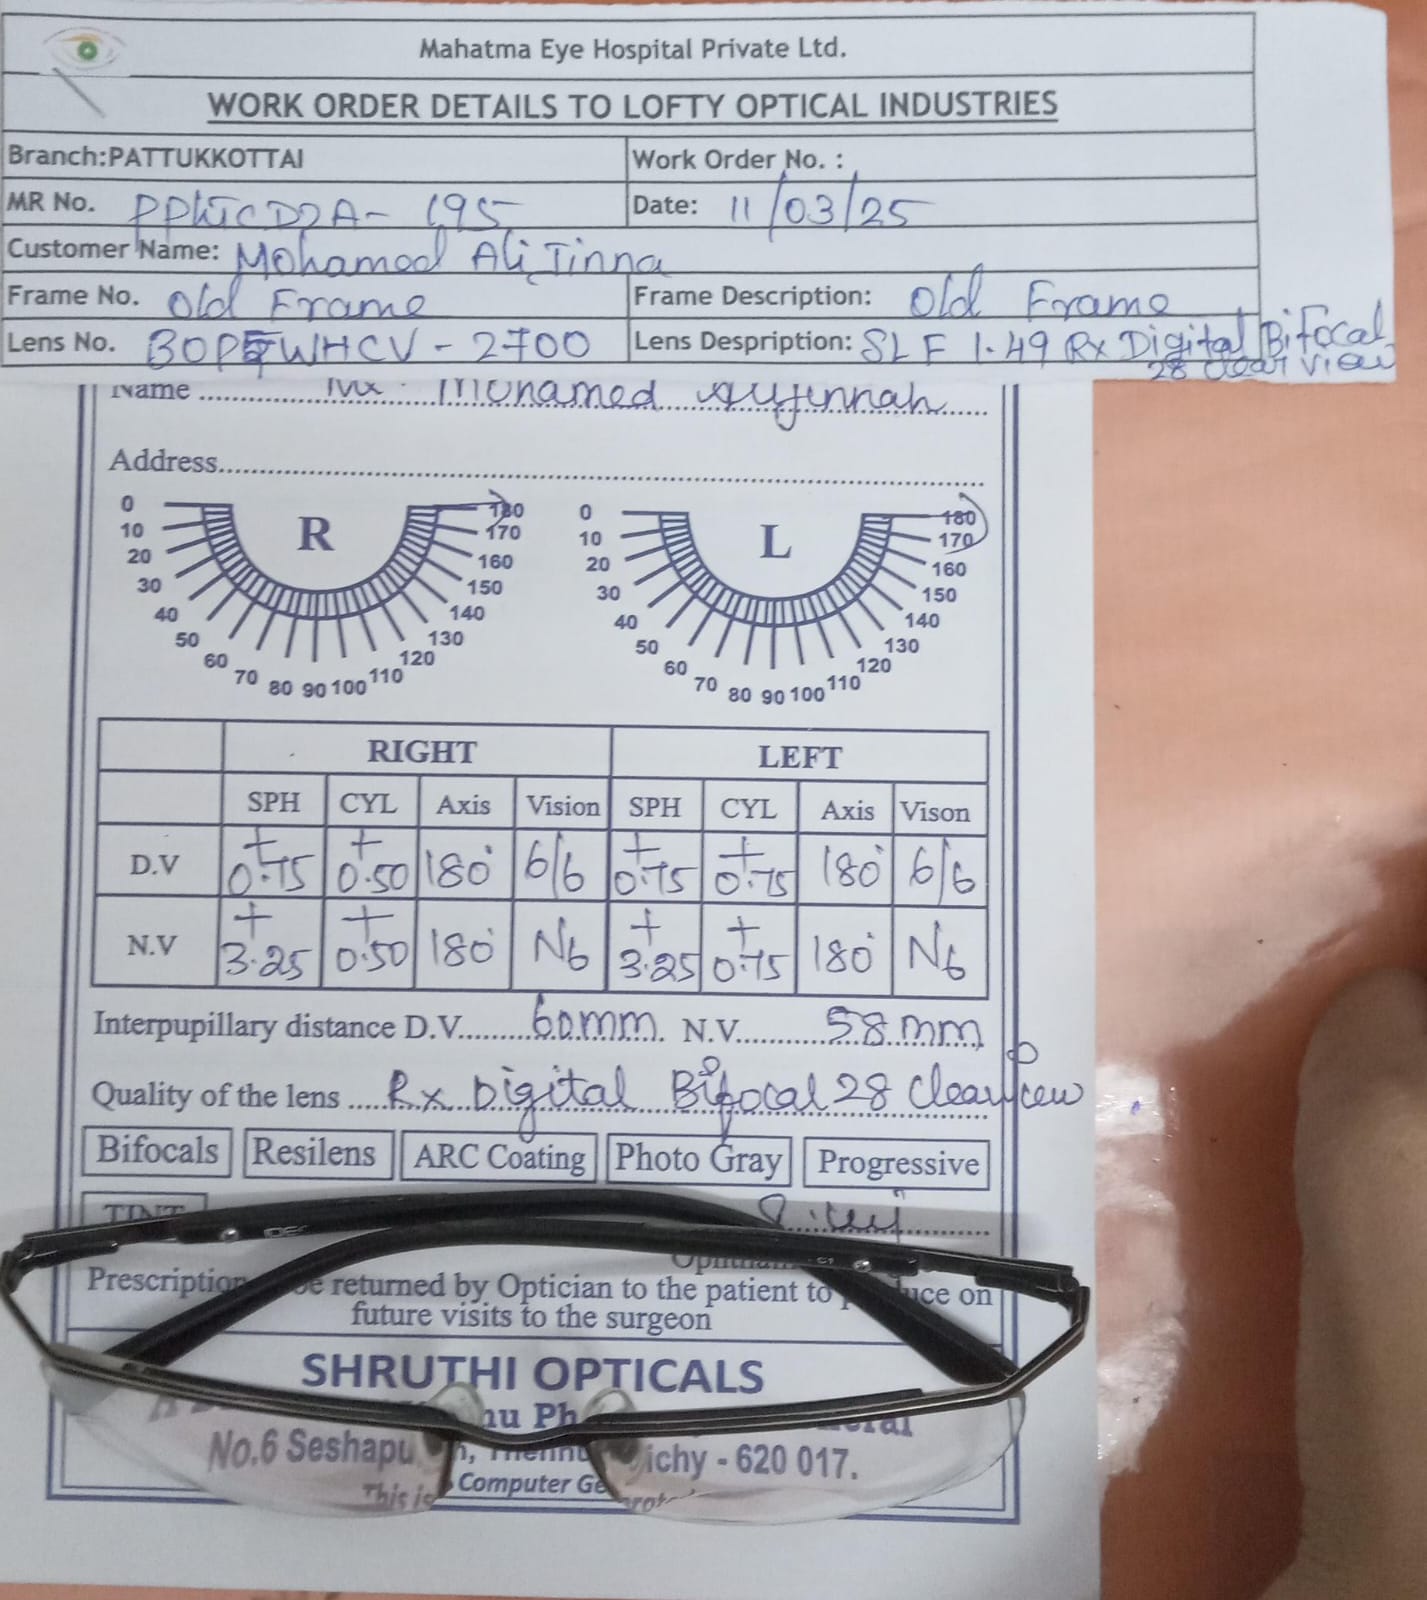 Mahatma Eye Hospital Private Ltd.
WORK ORDER DETAILS TO LOFTY OPTICAL INDUSTRIES
Branch:PATTUKKOTTAI Work Order No. :
MR No. Date: 11/03/25
Customer Name: Mohamed Ali Jinna
Frame No. Old Frame Frame Description: Old Frame
Lens No. WHCV - 2700 Lens Despription: SLF 1.49 Rx Digital Bifocal
28 clear view
Name Mr. Mohamed
Address
R L
0 180 0 180
10 170 10 170
20 160 20 160
30 150 30 150
40 140 40 140
50 130 50 130
60 120 60 120
70 110 70 110
80 90 100 80 90 100
RIGHT LEFT
SPH CYL Axis Vision SPH CYL Axis Vison
D.V +0.75 +0.50 180° 6/6 +0.75 +0.75 180° 6/6
N.V +3.25 +0.50 180° N6 +3.25 +0.75 180° N6
Interpupillary distance D.V. 60mm. N.V. 58mm
Quality of the lens Rx Digital Bifocal 28 Clear view
Bifocals Resilens ARC Coating Photo Gray Progressive
TINT
Prescription be returned by Optician to the patient to on
future visits to the surgeon
SHRUTHI OPTICALS
No.6 Seshapu - 620 017.
This is Computer